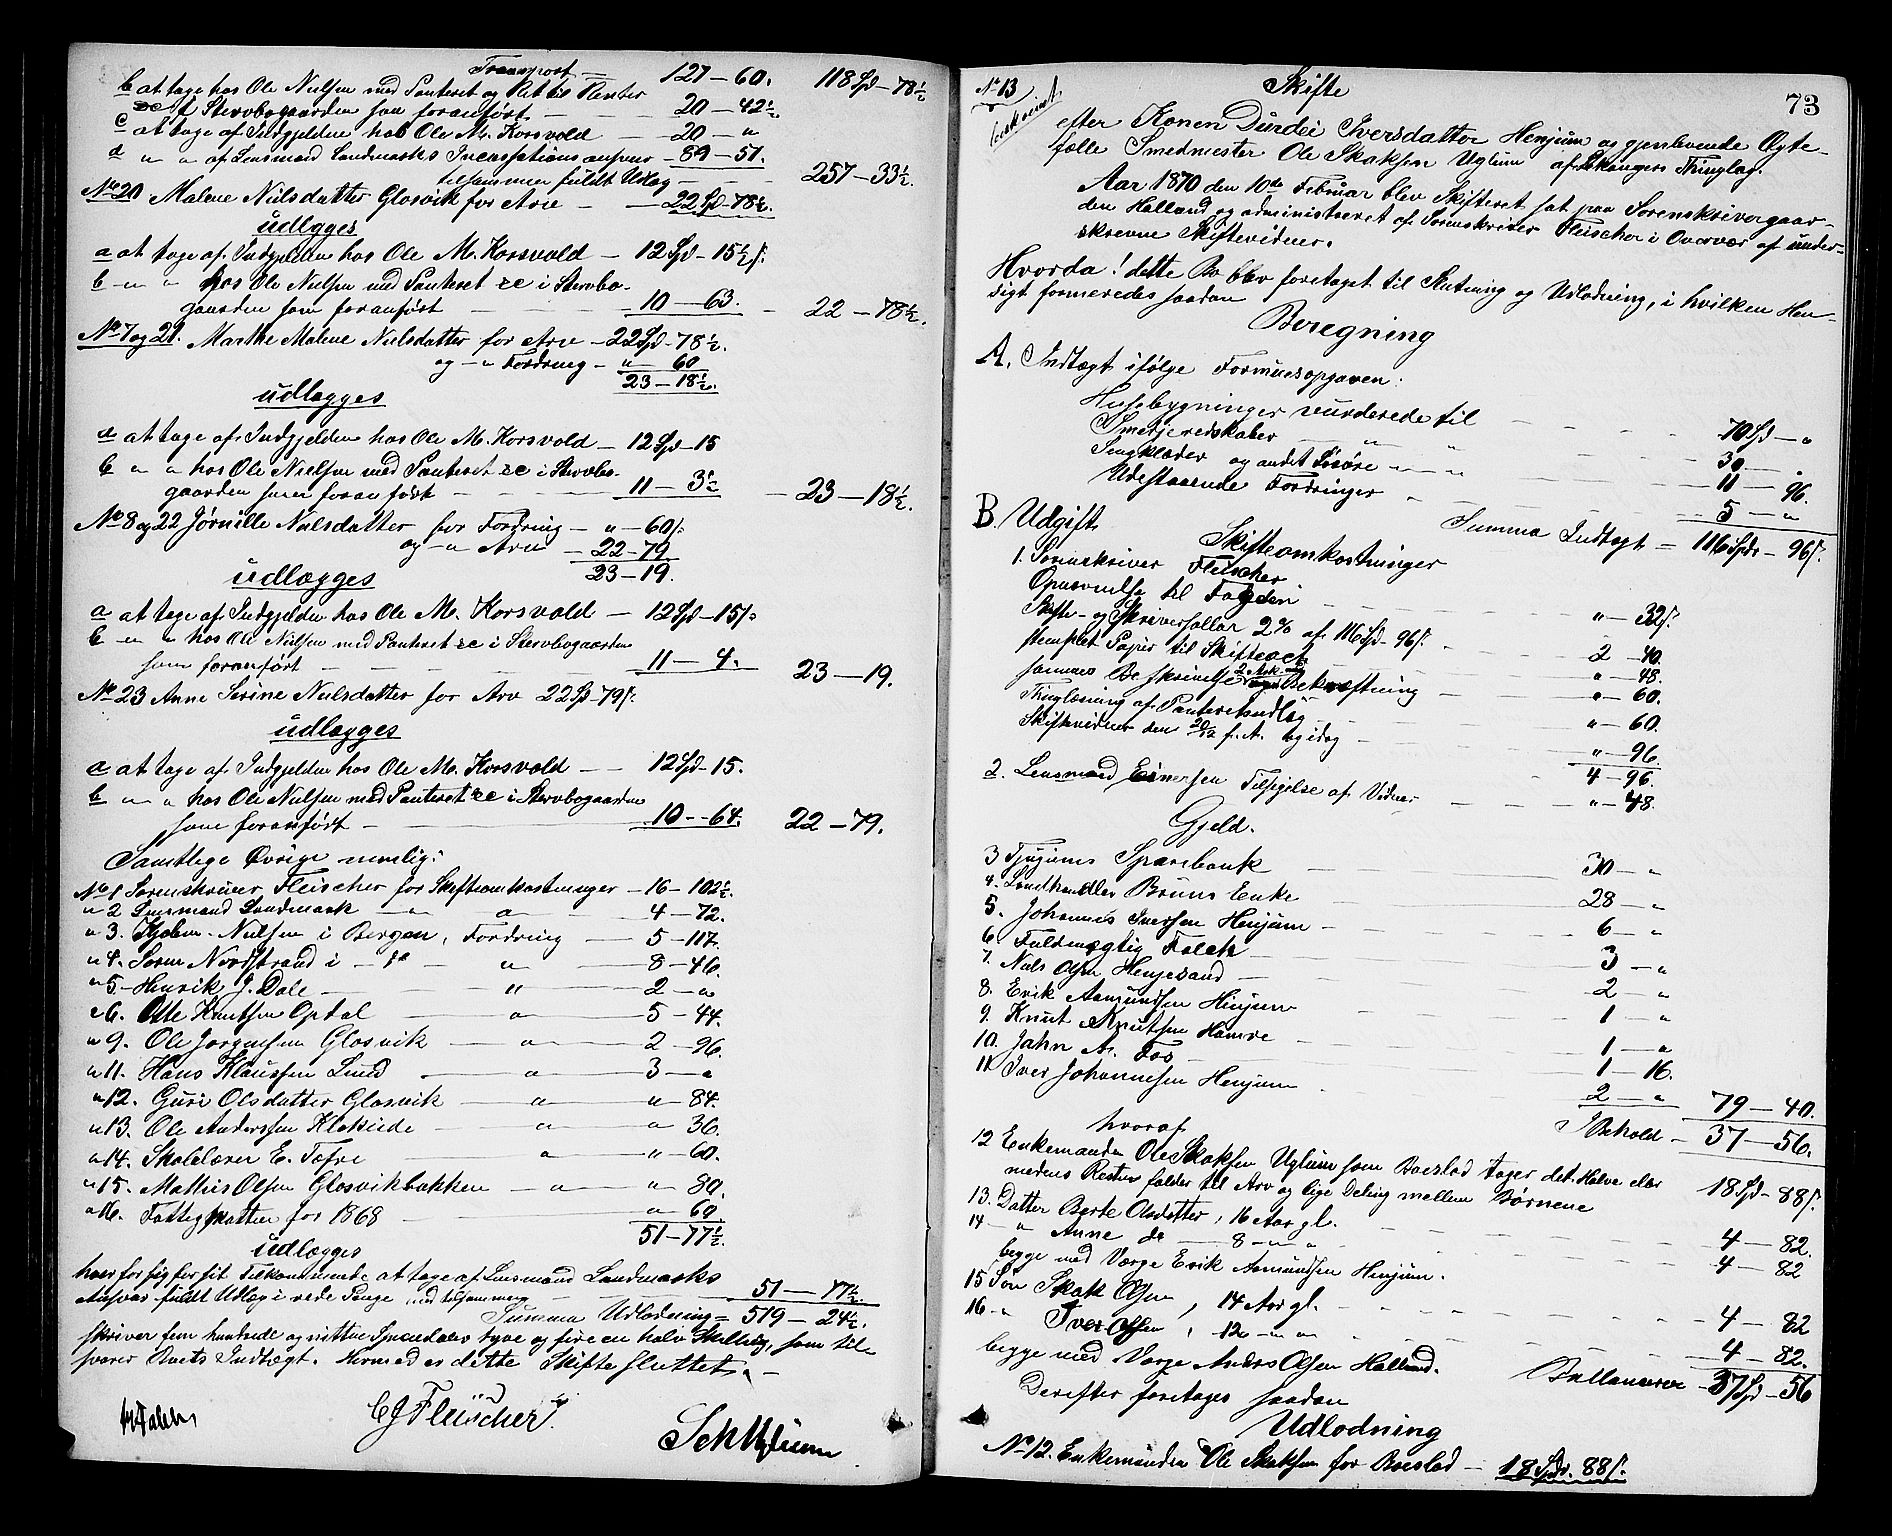 Transport — 127 — 60. 118 Spd — 78½
b at tage hos Ole Nielsen med Panteret og Ret til Renter
&c i Stervbogaarden som foranført — 20 — 42½
c at tage af Indgjelden hos Ole M. Korsvold — 20 — "
d " " af Lensmand Landmarks Incassationsansvar — 89 — 51.
tilsammen fuldt Udlæg — 257 — 33½.
No 20 Malene Nielsdatter Glosvik for Arv — 22 Spd — 78½.
udlægges
a at tage af Indgjelden hos Ole M. Korsvold — 12 Spd — 15½ s.
b — " " hos Ole Nielsen med Panteret &c i Stervbo-
gaarden som foranført — 10 — 63. — 22 — 78½.
No 7 og 21. Marthe Malene Nielsdatter for Arv — 22 Spd — 78½.
og — " Fordring — " — 60
23 — 18½.
udlægges
a at tage af Indgjelden hos Ole M. Korsvold — 12 Spd — 15
b " " hos Ole Nielsen med Panteret &c i Stervbo-
gaarden som foranført — 11 — 3½ — 23 — 18½.
No 8 og 22 Jørnille Nielsdatter for Fordring — " — 60 s.
og — " Arv — 22 — 79
23 — 19.
udlægges
a at tage af Indgjelden hos Ole M. Korsvold — 12 Spd — 15 s.
b — " " hos Ole Nielsen med Panteret &c i Stervbogaarden
som foranført — 11 — 4. 23 — 19.
No 23 Anne Serine Nielsdatter for Arv 22 Spd — 79 s.
udlægges
a at tage af Indgjelden hos Ole M. Korsvold — 12 Spd — 15.
b — " " hos Ole Nielsen med Panteret &c i Stervbogaarden
som foranført — 10 — 64. 22 — 79.
Samtlige Øvrige nemlig:
No 1 Sorenskriver Fleischer for Skifteomkostninger — 16 — 102½.
" 2 Lensmand Landmark — " — " 4 — 72.
" 3. Nielsen i Bergen, Fordring — 5 — 117.
" 4. Søren Nordstrand i — do " — 8 — 46.
" 5 — Henrik J. Dale — " — 2 — "
" 6. Otte Knutsen Opdal — " — 5 — 44.
" 9. Ole Jørgensen Glosvik — " — 2 — 96.
" 11. Hans Klaussen Lund — " — 3 — "
" 12. Guri Olsdatter Glosvik — " — " — 84.
" 13. Ole Anderssen — " — " 36.
" 14. Skolelærer E. Tofte — " — " — 60.
" 15. Mathis Olsen Glosvikbakken — " — " 80.
" 16. Fattigskatten for 1868 — " 60
51 — 77½.
udlægges
hver for sig for sit Tilkommende at tage af Lensmand Landmarks
Ansvar fuldt Udlæg i rede Penge med tilsammen — 51 — 77½.
Summa Udlodning = 519 — 24½.
skriver fem hundrede og nitten Speciedaler tyve og fire en halv Skilling, som til-
svarer Boets Indtægt. Hermed er dette Skifte sluttet. —
CJ Fleischer.
73
No 13 Skifte
efter Konen Durdei Iversdatter Henjum og gjenlevende Ægte-
fælle Smedmester Ole Skaksen Uglum af Lekangers Thinglag.
Aar 1870 den 10de Februar blev Skifteret sat paa Sorenskrivergaar-
den Halland og administreret af Sorenskriver Fleischer i Overvær af under-
skrevne Skiftevidner.
Hvorda! dette Bo blev foretaget til Slutning og Udlodning, i hvilken Hen-
sigt formeredes saadan
Beregning
A. Indtægt ifølge Formuesopgaven:
Husebygninger vurderede til — 70 Spd — "
Smedjeredskaber — " — 30 — "
Sengklæder og andet Løsøre — " — " — 11 — 96.
Udestaaende Fordringer — 5 — "
Summa Indtægt — 116 Spdr — 96 s.
B. Udgift
Skifteomkostninger
1. Sorenskriver Fleischer
til Fogden — " — 32 s.
Skifte- og Skriversallar 2% af 116 Spd — 96 s. — 2 — 40.
stemplet Papir til Skifteact — " — 48.
sammes Beskrivelse 2 Ark og Bekræftning — " — 60.
Thinglæsning af Panteretsudlæg — " — 60.
Skiftevidner den 20/12 f. A. og idag — " — 96
4 — 96.
2. Lensmand Einersen Tilsigelse af Vidner — " — 48.
Gjeld.
3 Tjugums Sparebank — 30 — "
4. Landhandler Bruns Enke — 28 — "
5. Johannes Iversen Henjum — 6 — "
6. Fuldmægtig Falch — 3 — "
7. Niels Olsen Henjesand — 2 — "
8. Erik Aamundsen Henjum — 1 — "
9. Knut Knutsen Hamre — 1 — "
10. Jahn A. Fos — 1 — 16.
11 Iver Johannesen Henjum — 2 — " 79 — 40.
I Behold — 37 — 56.
hvoraf
12 Enkemanden Ole Skaksen Uglum som Boeslod tager det Halve eller 18 Spd — 88 s.
medens Resten falder til Arv og lige Deling mellem Børnene
13. Datter Berte Olsdatter, 16 Aar gl. — 4 — 82.
14 — " Anne do — 8 — " " — 4 — 82
begge med Værge Erik Aamundsen Henjum.
15 Søn Skak Olsen, 14 Aar gl. — 4 — 82
16 — " Iver Olsen, 12 — " " — 4 — 82.
begge med Værge Anders Olsen Halland. Ballancerer — 37 Spd — 56
Derefter foretages saadan
Udlodning
No 12. Enkemanden Ole Skaksen for Boeslod — 18 Spdr. 88 s.